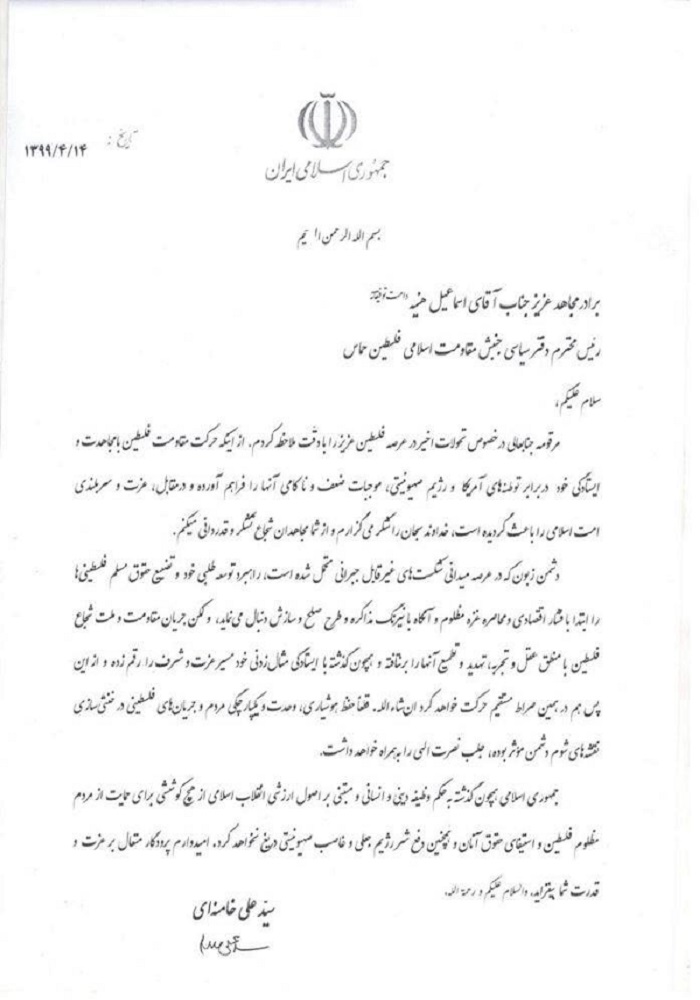 تاریخ :
۱۳۹۹/۴/۱۴
جمهوری اسلامی ایران
بسم الله الرحمن الرحیم
برادر مجاهد عزیز جناب آقای اسماعیل هنیه دامت توفیقاته
رئیس محترم دفتر سیاسی جنبش مقاومت اسلامی فلسطین حماس
سلام علیکم،
مرقومه جنابعالی در خصوص تحولات اخیر در عرصه فلسطین عزیز را با دقّت ملاحظه کردم. از اینکه حرکت مقاومت فلسطین با مجاهدت و
ایستادگی خود در برابر توطئه‌های آمریکا و رژیم صهیونیستی، موجبات ضعف و ناکامی آنها را فراهم آورده و در مقابل، عزت و سربلندی
امت اسلامی را باعث گردیده است، خداوند سبحان را شکر می‌گزارم و از شما مجاهدان شجاع تشکر و قدردانی میکنم.
دشمن زبون که در عرصه میدانی شکست‌های غیر قابل جبرانی متحمل شده است، راهبرد توسعه طلبی خود و تضییع حقوق مسلم فلسطینی‌ها
را ابتدا با فشار اقتصادی و محاصره غزه مظلوم و آنگاه با نیرنگ مذاکره و طرح صلح و سازش دنبال می‌نماید، ولکن جریان مقاومت و ملت شجاع
فلسطین با منطق عقل و تجربه، تهدید و تطمیع آنها را برنتافته و همچون گذشته با ایستادگی مثال زدنی خود مسیر عزت و شرف را رقم زده و از این
پس هم در همین صراط مستقیم حرکت خواهد کرد ان شاء الله. قطعاً حفظ هوشیاری، وحدت و یکپارچگی مردم و جریان‌های فلسطینی در خنثی‌سازی
نقشه‌های شوم دشمن مؤثر بوده، جلب نصرت الهی را به همراه خواهد داشت.
جمهوری اسلامی همچون گذشته به حکم وظیفه دینی و انسانی و مبتنی بر اصول ارزشی انقلاب اسلامی از هیچ کوششی برای حمایت از مردم
مظلوم فلسطین و استیفای حقوق آنان و همچنین دفع شر رژیم جعلی و غاصب صهیونیستی دریغ نخواهد کرد. امیدوارم پروردگار متعال بر عزت و
قدرت شما بیفزاید، والسلام علیکم و رحمة الله.
سید علی خامنه‌ای